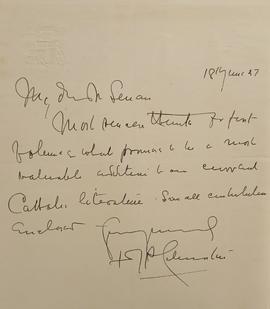 18 June 27
My dear Fr Senan
Most sincere thanks for first
volume of what promises to be a most
valuable addition to our current
Catholic literature. Small contribution
enclosed